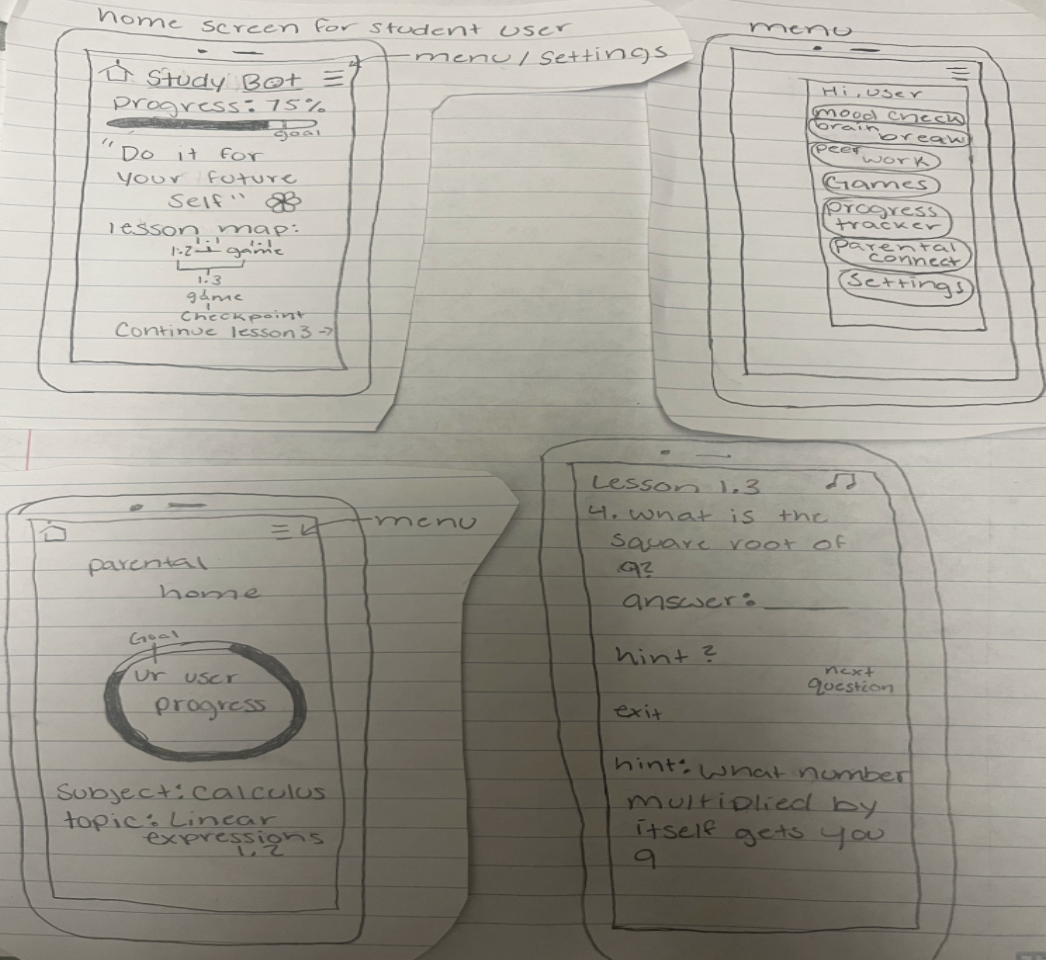 home screen for student user
menu / settings
Study Bot
Progress: 75%
goal
"Do it for
your future
self"
lesson map:
1.2 game
1.3
game
checkpoint
Continue lesson 3 →
menu
Hi, user
mood check
brain
break
peer
work
Games
progress
tracker
parental
connect
settings
menu
parental
home
Goal
Ur user
progress
Subject: Calculus
topic: Linear
expressions
1.2
Lesson 1.3
4. What is the
square root of
9?
answer: ______
hint?
next
question
exit
hint: What number
multiplied by
itself gets you
9